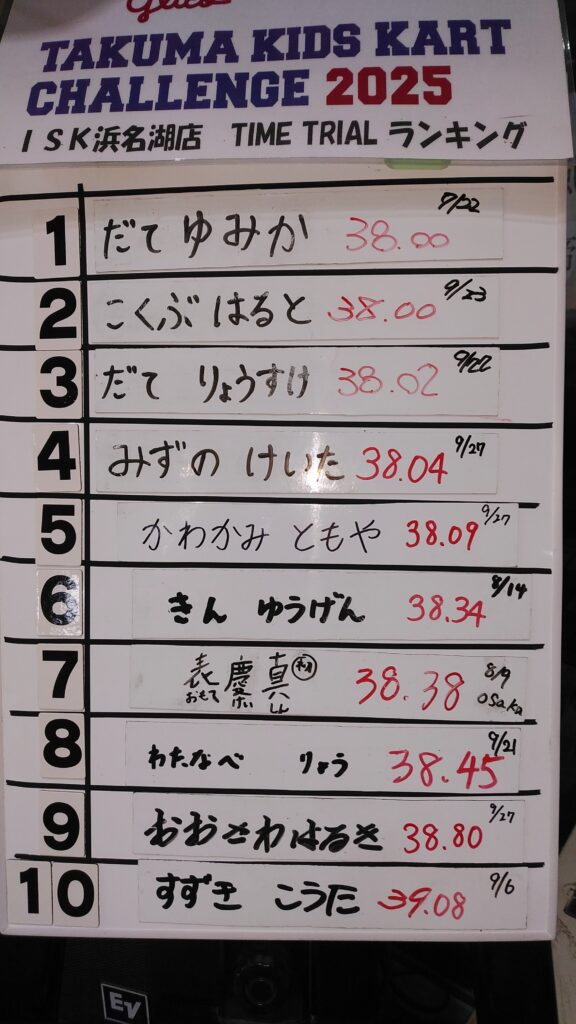 TAKUMA KIDS KART
CHALLENGE 2025
ISK浜名湖店 TIME TRIAL ランキング
1 だて ゆみか 38.00 9/22
2 こくぶ はると 38.00 9/23
3 だて りょうすけ 38.02 9/22
4 みずの けいた 38.04 9/27
5 かわかみ ともや 38.09 9/27
6 きん ゆうげん 38.34 8/14
7 表 慶真 38.38 8/9
おもて osaka
8 わたなべ りょう 38.45 9/21
9 おおさわはるき 38.80 9/27
10 すずき こうた 39.08 9/6
EV